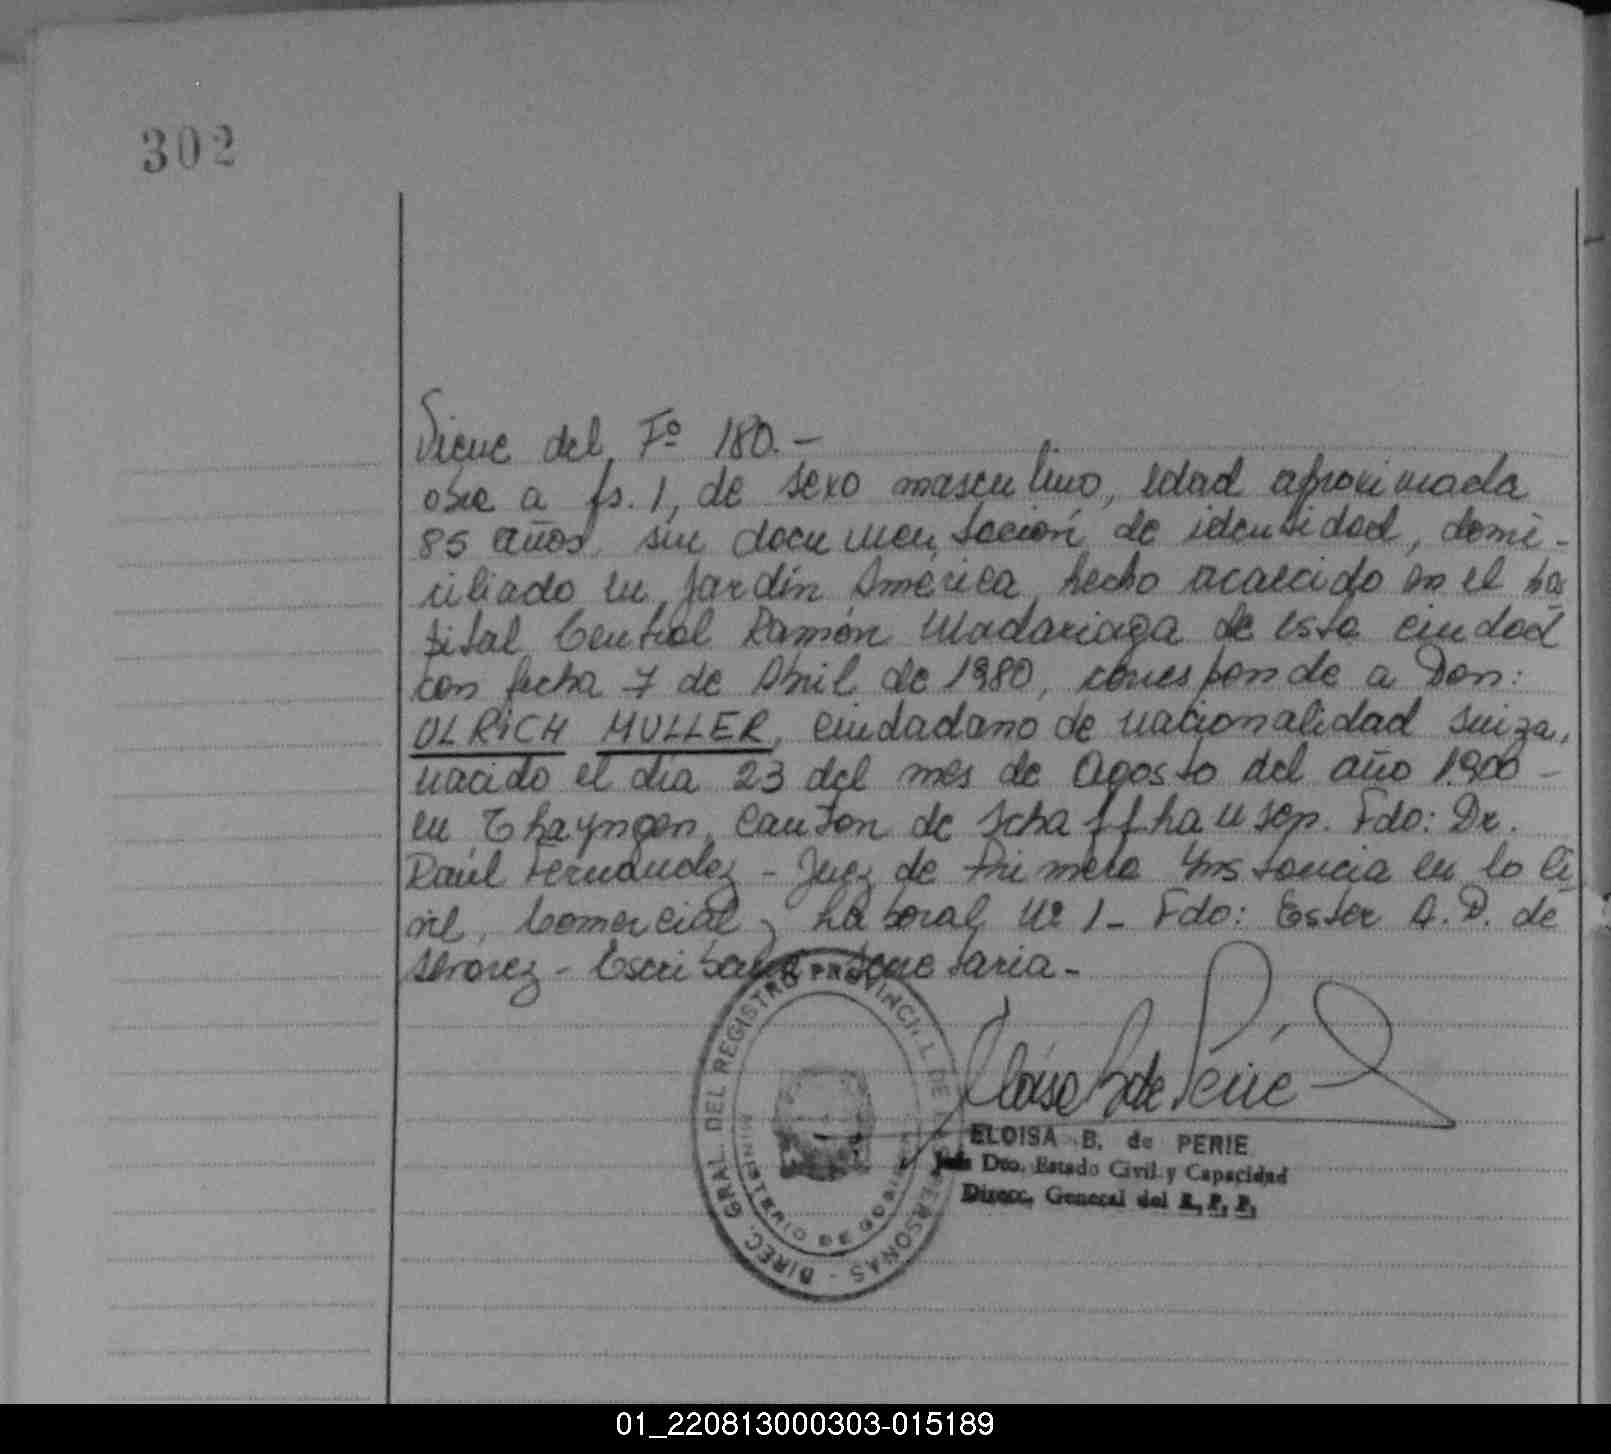 302
Viene del Fº 180.-
obra a fs. 1, de sexo masculino, edad aproximada
85 años, sin documentación de identidad, domi-
ciliado en Jardín América, hecho acaecido en el hos
pital Central Ramón Madariaga de esta ciudad
con fecha 7 de Abril de 1980, corresponde a Don:
ULRICH MULLER, ciudadano de nacionalidad suiza,
nacido el día 23 del mes de Agosto del año 1.900-
en Thayngen, Cantón de Schaffhausen. Fdo: Dr.
Raúl Fernández - Juez de Primera Instancia en lo Ci
vil, Comercial y Laboral Nº 1- Fdo: Ester A. D. de
Alvarez - Escribana Secretaria-
DIREC. GRAL. DEL REGISTRO PROVINCIAL DE LAS PERSONAS -
MINISTERIO DE GOBIERNO
Eloisa B de Perié
ELOISA B. de PERIE
Jefe Dto. Estado Civil y Capacidad
Direcc. General del R. P. P.
01_220813000303-015189